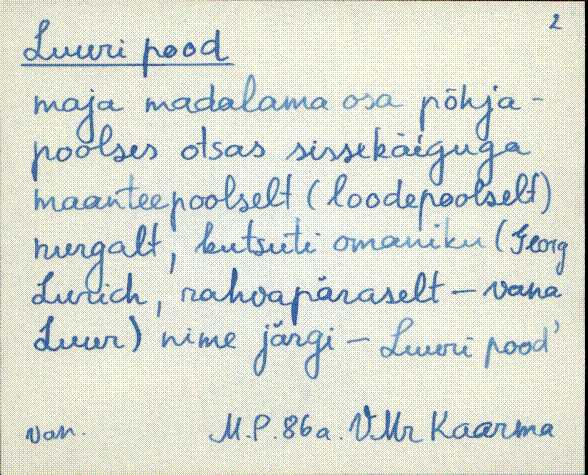 2
Luuri pood
maja madalama osa põhja-
poolses otsas sissekäiguga
maanteepoolselt (loodepoolselt)
nurgalt, kutsuti omaniku (Georg
Lurich, rahvapäraselt – vana
Luur) nime järgi – Luuri pood'
van. M.P. 86a. VMr Kaarma